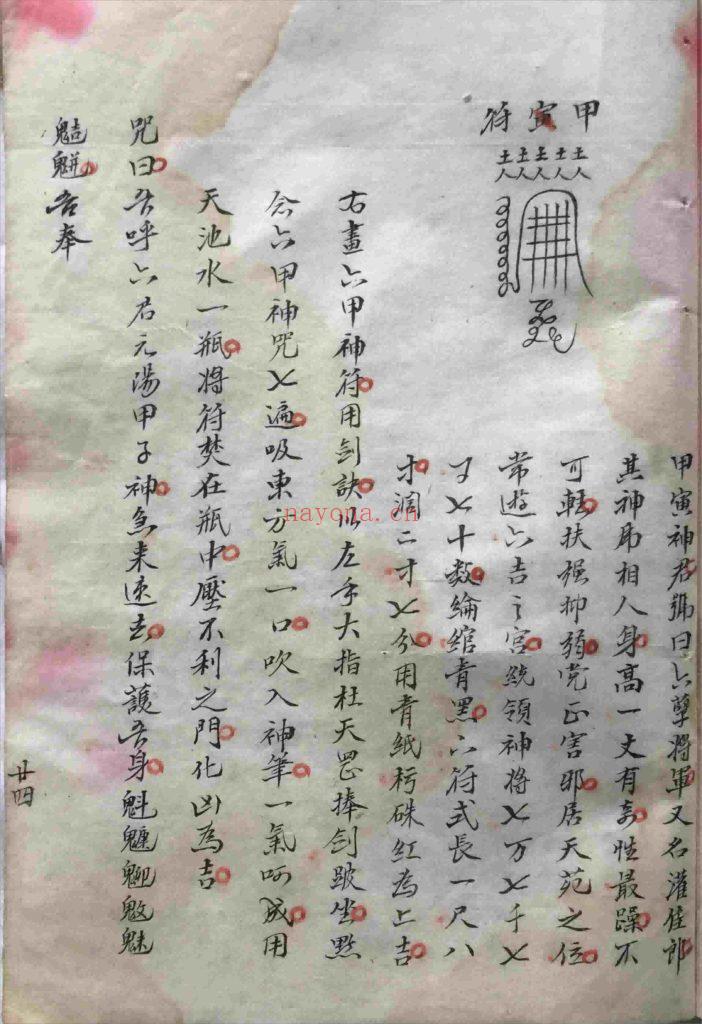 甲寅符
甲寅神君號曰六孽將軍又名灌佳郎
其神昴相人身高一丈有性最躁不
可輕扶强抑弱党正害邪居天苑之位
常遊六吉之宮統領神將乂万乂千乂
乂十数綸綰青黑六符式長一尺八
寸濶二寸乂分用青紙硃紅為上吉
右畫六甲神符用剑訣以左手大指杜天罡捧剑跛坐點
念六甲神咒乂遍吸東方氣一口吹入神筆一氣呵成用
天池水一瓶將符焚在瓶中壓不利之門化凶為吉
咒曰吾呼六君元湯甲子神急来速去保護吾身魁魅
吾奉
廿四
nayona.cn